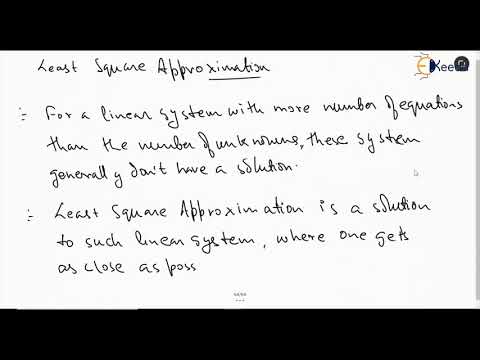 Least Square Approximation
For a linear system with more number of equations
than the number of unknowns, these system
generally don't have a solution.
Least Square Approximation is a solution
to such linear system, where one gets
as close as poss